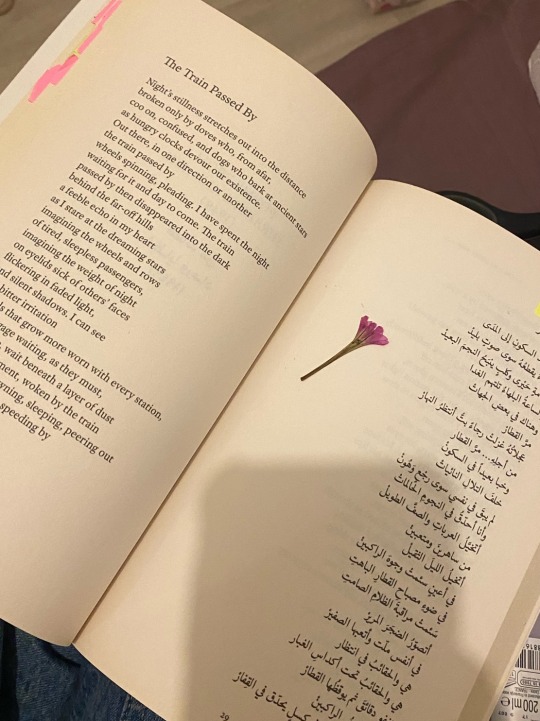 The Train Passed By
Night's stillness stretches out into the distance
broken only by doves who, from afar,
coo on, confused, and dogs who bark at ancient stars
as hungry clocks devour our existence.
Out there, in one direction or another
the train passed by
wheels spinning, pleading. I have spent the night
waiting for it and day to come. The train
passed by then disappeared into the dark
behind the far-off hills
a feeble echo in my heart
as I stare at the dreaming stars
imagining the wheels and rows
of tired, sleepless passengers,
imagining the weight of night
on eyelids sick of others' faces
flickering in faded light,
silent shadows. I can see
bitter irritation
that grow more worn with every station,
waiting, as they must,
wait beneath a layer of dust
woken by the train
sleeping, peering out
speeding by
السكون إلى المدى
يقطعه سوى صوت بليد
حيرى وكلب ينبح النجم البعيد
الساعة البلهاء تلتهم الغدا
وهناك في بعض الجهات
مرّ القطار
عجلاته غزلت رجاء بتّ أنتظر النهار
من أجله .. مرّ القطار
وخبا بعيداً في السكون
خلف التلال النائيات
لم يبق في نفسي سوى رجع وهون
وأنا أحدّق في النجوم الحالمات
أتخيّل العربات والصفّ الطويل
من ساهرين ومتعبين
أتخيّل الليل الثقيل
في أعين سئمت وجوه الراكبين
في ضوء مصباح القطار الباهت
سئمت مراقبة الظلام الصامت
أتصوّر الضجر المرير
في أنفس ملّت وأتعبها الصفير
هي والحقائب في انتظار
هي والحقائب تحت أكداس الغبار
دقائق ثم يوقظها القطار
الراكبين
يحدّق في القفار
29
200 ml